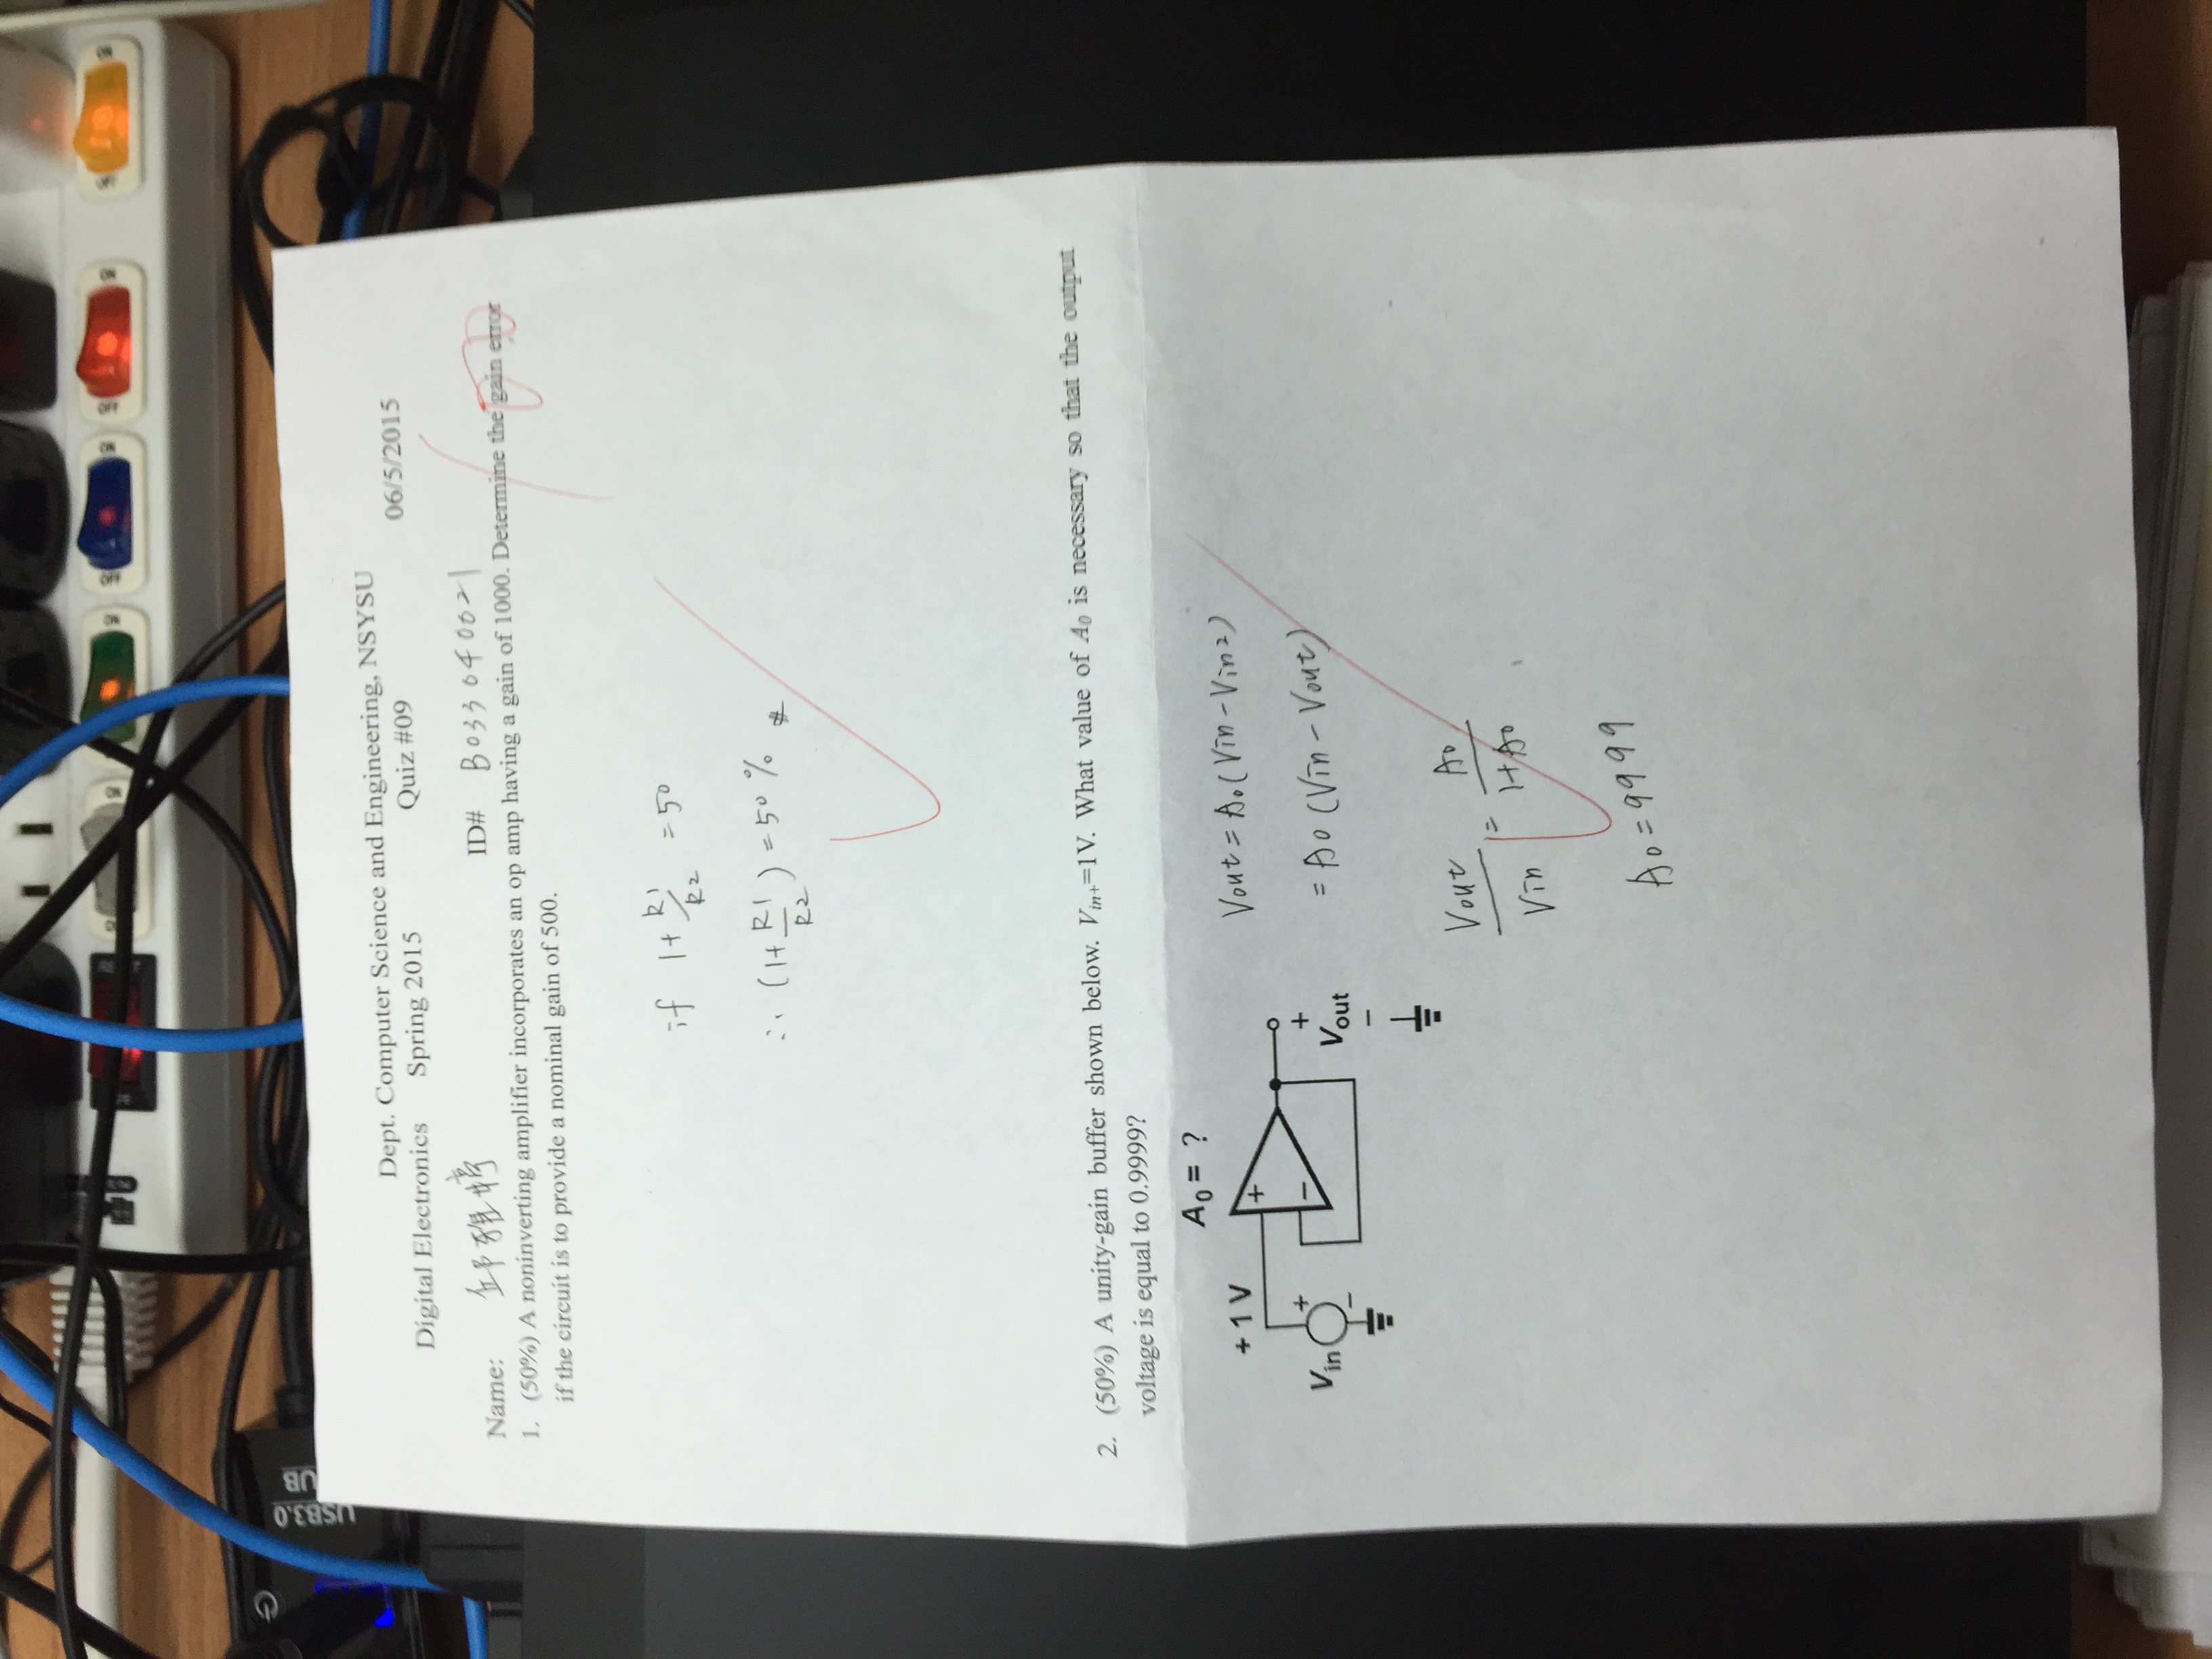 USB3.0
UB
Dept. Computer Science and Engineering, NSYSU
Digital Electronics Spring 2015 Quiz #09 06/5/2015
Name: 邱雅婷 ID# B033040021
100
1. (50%) A noninverting amplifier incorporates an op amp having a gain of 1000. Determine the gain error
if the circuit is to provide a nominal gain of 500.
if 1+ R1/R2 = 50
∴ (1+ R1/R2) = 50% #
2. (50%) A unity-gain buffer shown below. Vin+=1V. What value of A0 is necessary so that the output
voltage is equal to 0.9999?
A0 = ?
+1 V
+
−
Vin
+
−
+
Vout
−
Vout = A0(Vin - Vin2)
= A0 (Vin - Vout)
Vout/Vin = A0/1+A0
A0 = 9999